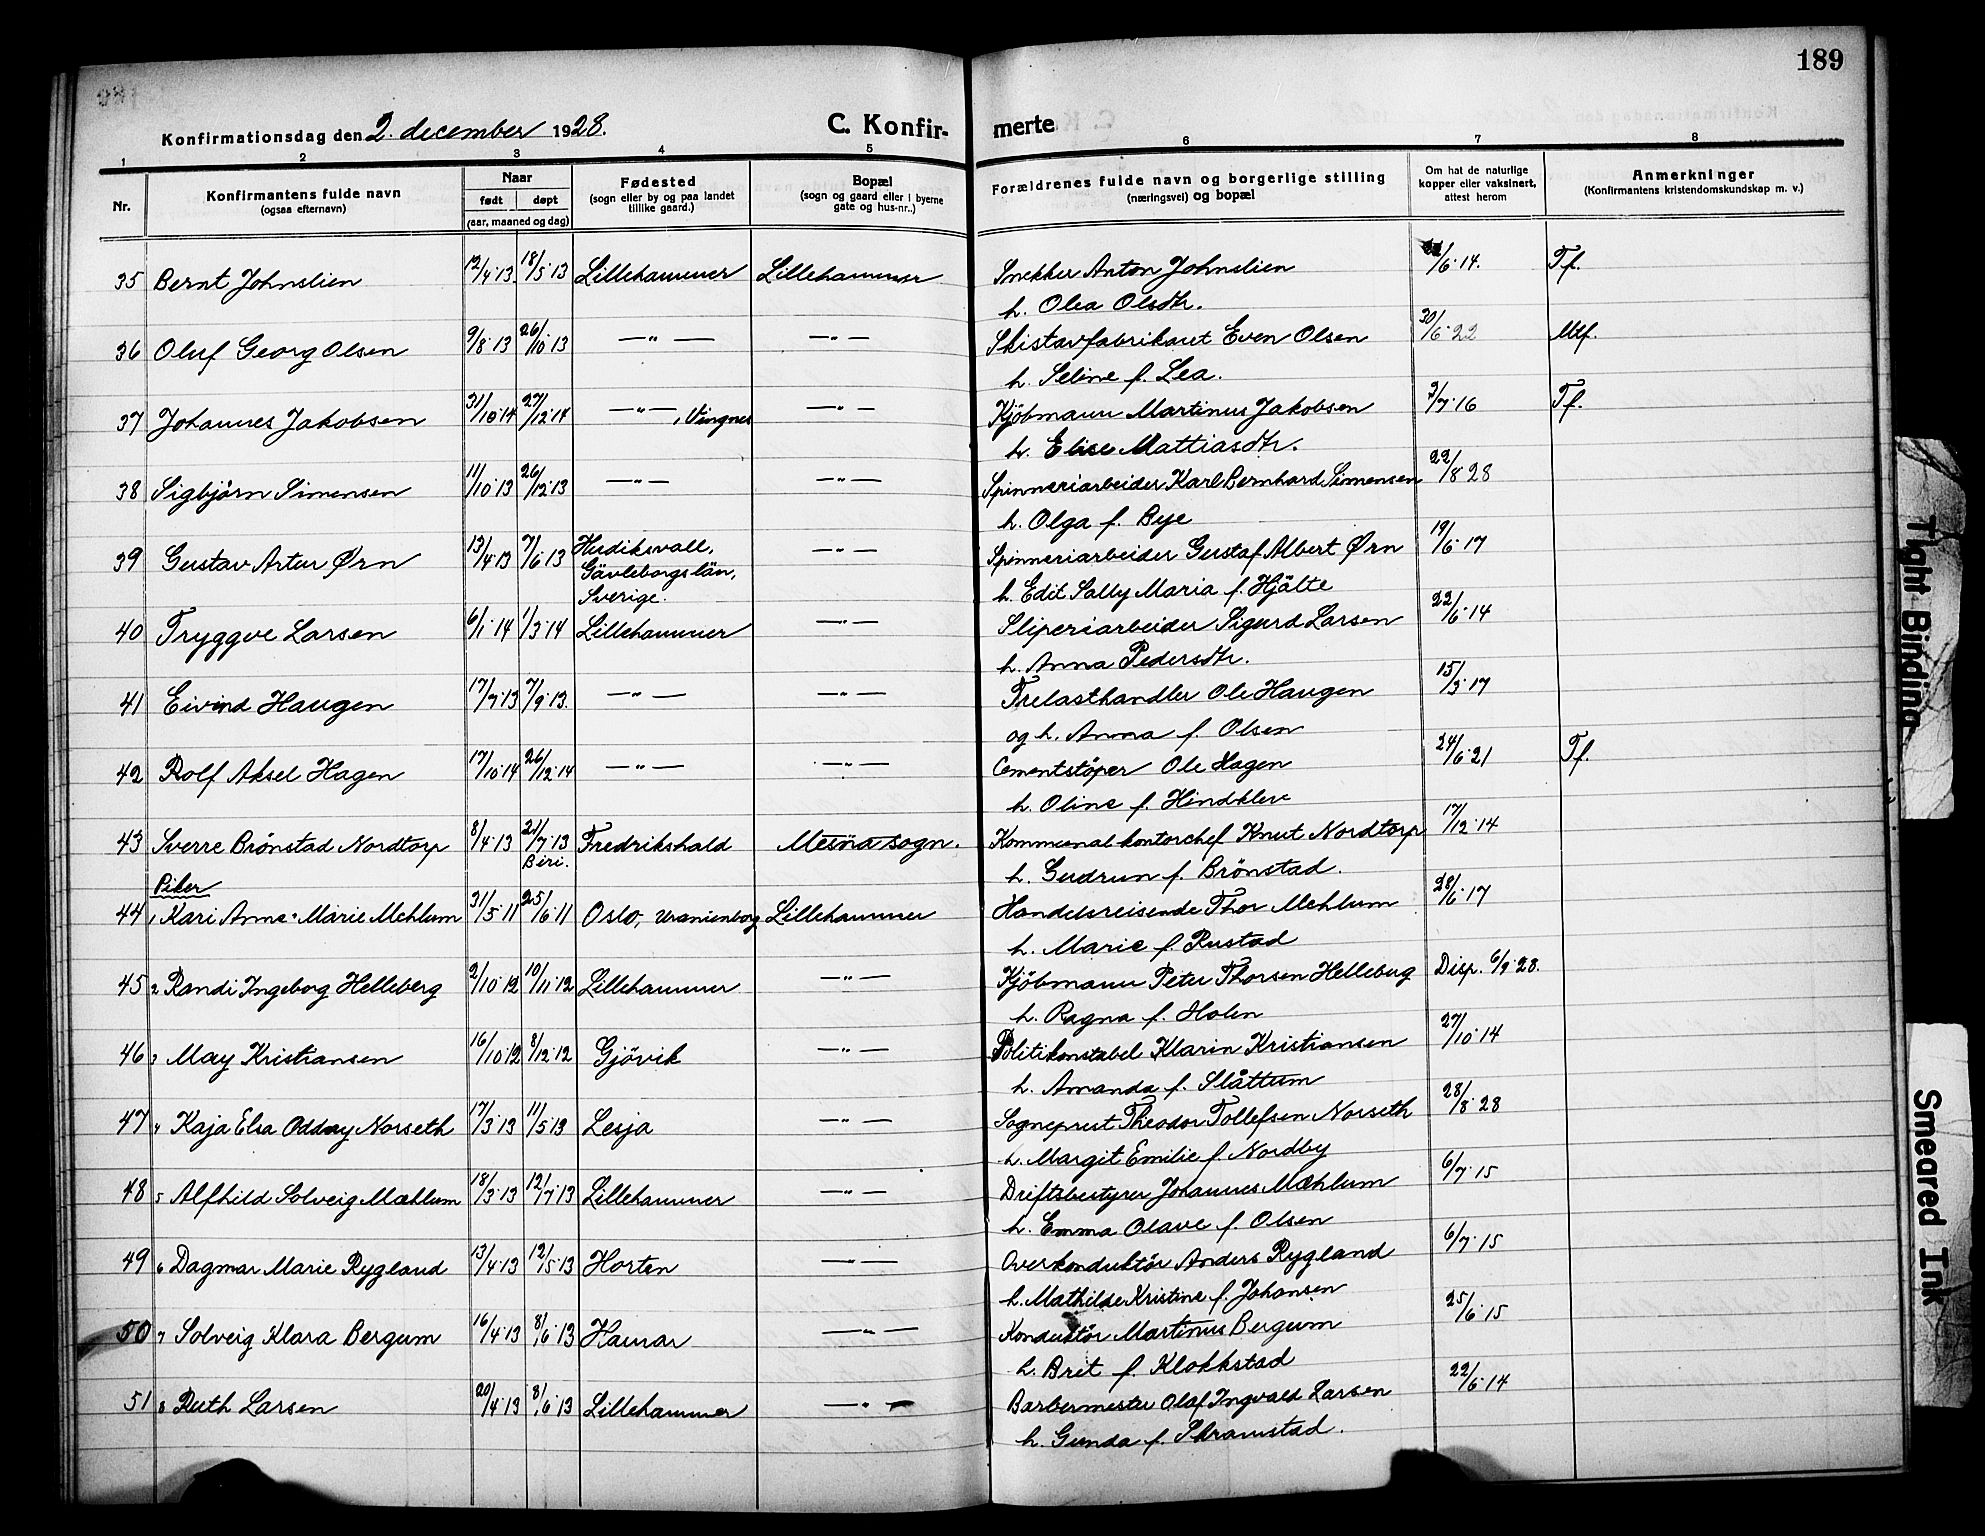 189
Konfirmationsdag den 2. december 1928.
C. Konfirmerte
1 2 3 4 5 6 7 8
Nr.
Konfirmantens fulde navn
(ogsaa efternavn)
Naar
født døpt
(aar, maaned og dag)
Fødested
(sogn eller by og paa landet
tillike gaard.)
Bopæl
(sogn og gaard eller i byerne
gate og hus-nr.)
Forældrenes fulde navn og borgerlige stilling
(næringsvei) og bopæl
Om hat de naturlige
kopper eller vaksinert,
attest herom
Anmerkninger
(Konfirmantens kristendomskundskap m. v.)
35 Bernt Johnslien 12/4 13 18/5 13 Lillehammer Lillehammer Snekker Anton Johnslien /6 14. Tf.
h. Olea Olsdtr.
36 Oluf Georg Olsen 9/8 13 26/10 13 —"— —"— Skistavfabrikant Even Olsen 30/6 22 Mtf.
h. Seline f. Lea.
37 Johannes Jakobsen 31/10 14 27/12 14 —"—, Vingnes —"— Kjöbmann Martinus Jakobsen 3/7 16 Tf.
h. Elise Mattiasdtr.
38 Sigbjörn Simensen 11/10 13 26/12 13 —"— —"— Spinneriarbeider Karl Bernhard Simensen 22/8 28
h. Olga f. Bye
39 Gustav Artur Ørn 13/4 13 7/6 13 Hudiksvall, —"— Spinneriarbeider Gustaf Albert Ørn 19/6 17
Gävleborgs län,
Sverige.
h. Edit Sally Maria f. Hjälte
40 Tryggve Larsen 6/1 14 1/3 14 Lillehammer —"— Sliperiarbeider Sigurd Larsen 22/6 14
h. Anna Pedersdtr.
41 Eivind Haugen 17/7 13 7/9 13. —"— —"— Trelasthandler Ole Haugen 15/3 17
og h. Anna f. Olsen
42 Rolf Aksel Hagen 17/10 14 26/12 14 —"— —"— Cementstöper Ole Hagen 24/6 21 Tf.
h. Oline f. Hindklev
43 Sverre Brönstad Nordtorp 8/4 13 21/7 13 Fredrikshald Mesna sogn. Kommunal kontorchef Knut Nordtorp 17/12 14
Biri.
h. Gudrun f. Brönstad.
Piker
44 1 Kari Anne-Marie Mehlum 31/5 11 25/6 11 Oslo, Uranienborg Lillehammer Handelsreisende Thor Mehlum 28/6 17
h. Marie f. Rustad
45 2 Randi Ingeborg Helleberg 2/10 12 10/11 12 Lillehammer —"— Kjöbmann Peter Thorsen Helleberg Disp. 6/9 28.
h. Ragna f. Holen
46 3 May Kristiansen 16/10 12 8/12 12 Gjövik —"— Politikonstabel Klarin Kristiansen 27/10 14
h. Amanda f. Slåttum
47 4 Kaja Elsa Oddny Norseth 17/3 13 11/5 13 Lesja —"— Sogneprest Theodor Tollefsen Norseth 28/8 28
h. Margit Emilie f. Nordby
48 5 Alfhild Solveig Mæhlum 18/3 13 12/7 13 Lillehammer —"— Driftsbestyrer Johannes Mæhlum 6/7 15
h. Emma Olave f. Olsen
49 6 Dagmar Marie Rygland 13/4 13 12/5 13 Horten —"— Overkonduktör Anders Rygland 6/7 15
h. Mathilde Kristine f. Johansen
50 7 Solveig Klara Bergum 16/4 13 8/6 13 Hamar —"— Konduktör Martinus Bergum 25/6 15
h. Brit f. Klokkstad
51 8 Ruth Larsen 20/4 13 8/6 13 Lillehammer —"— Barbermester Olaf Ingvald Larsen 22/6 14
h. Gunda f. Skramstad.
Tight Binding
Smeared Ink